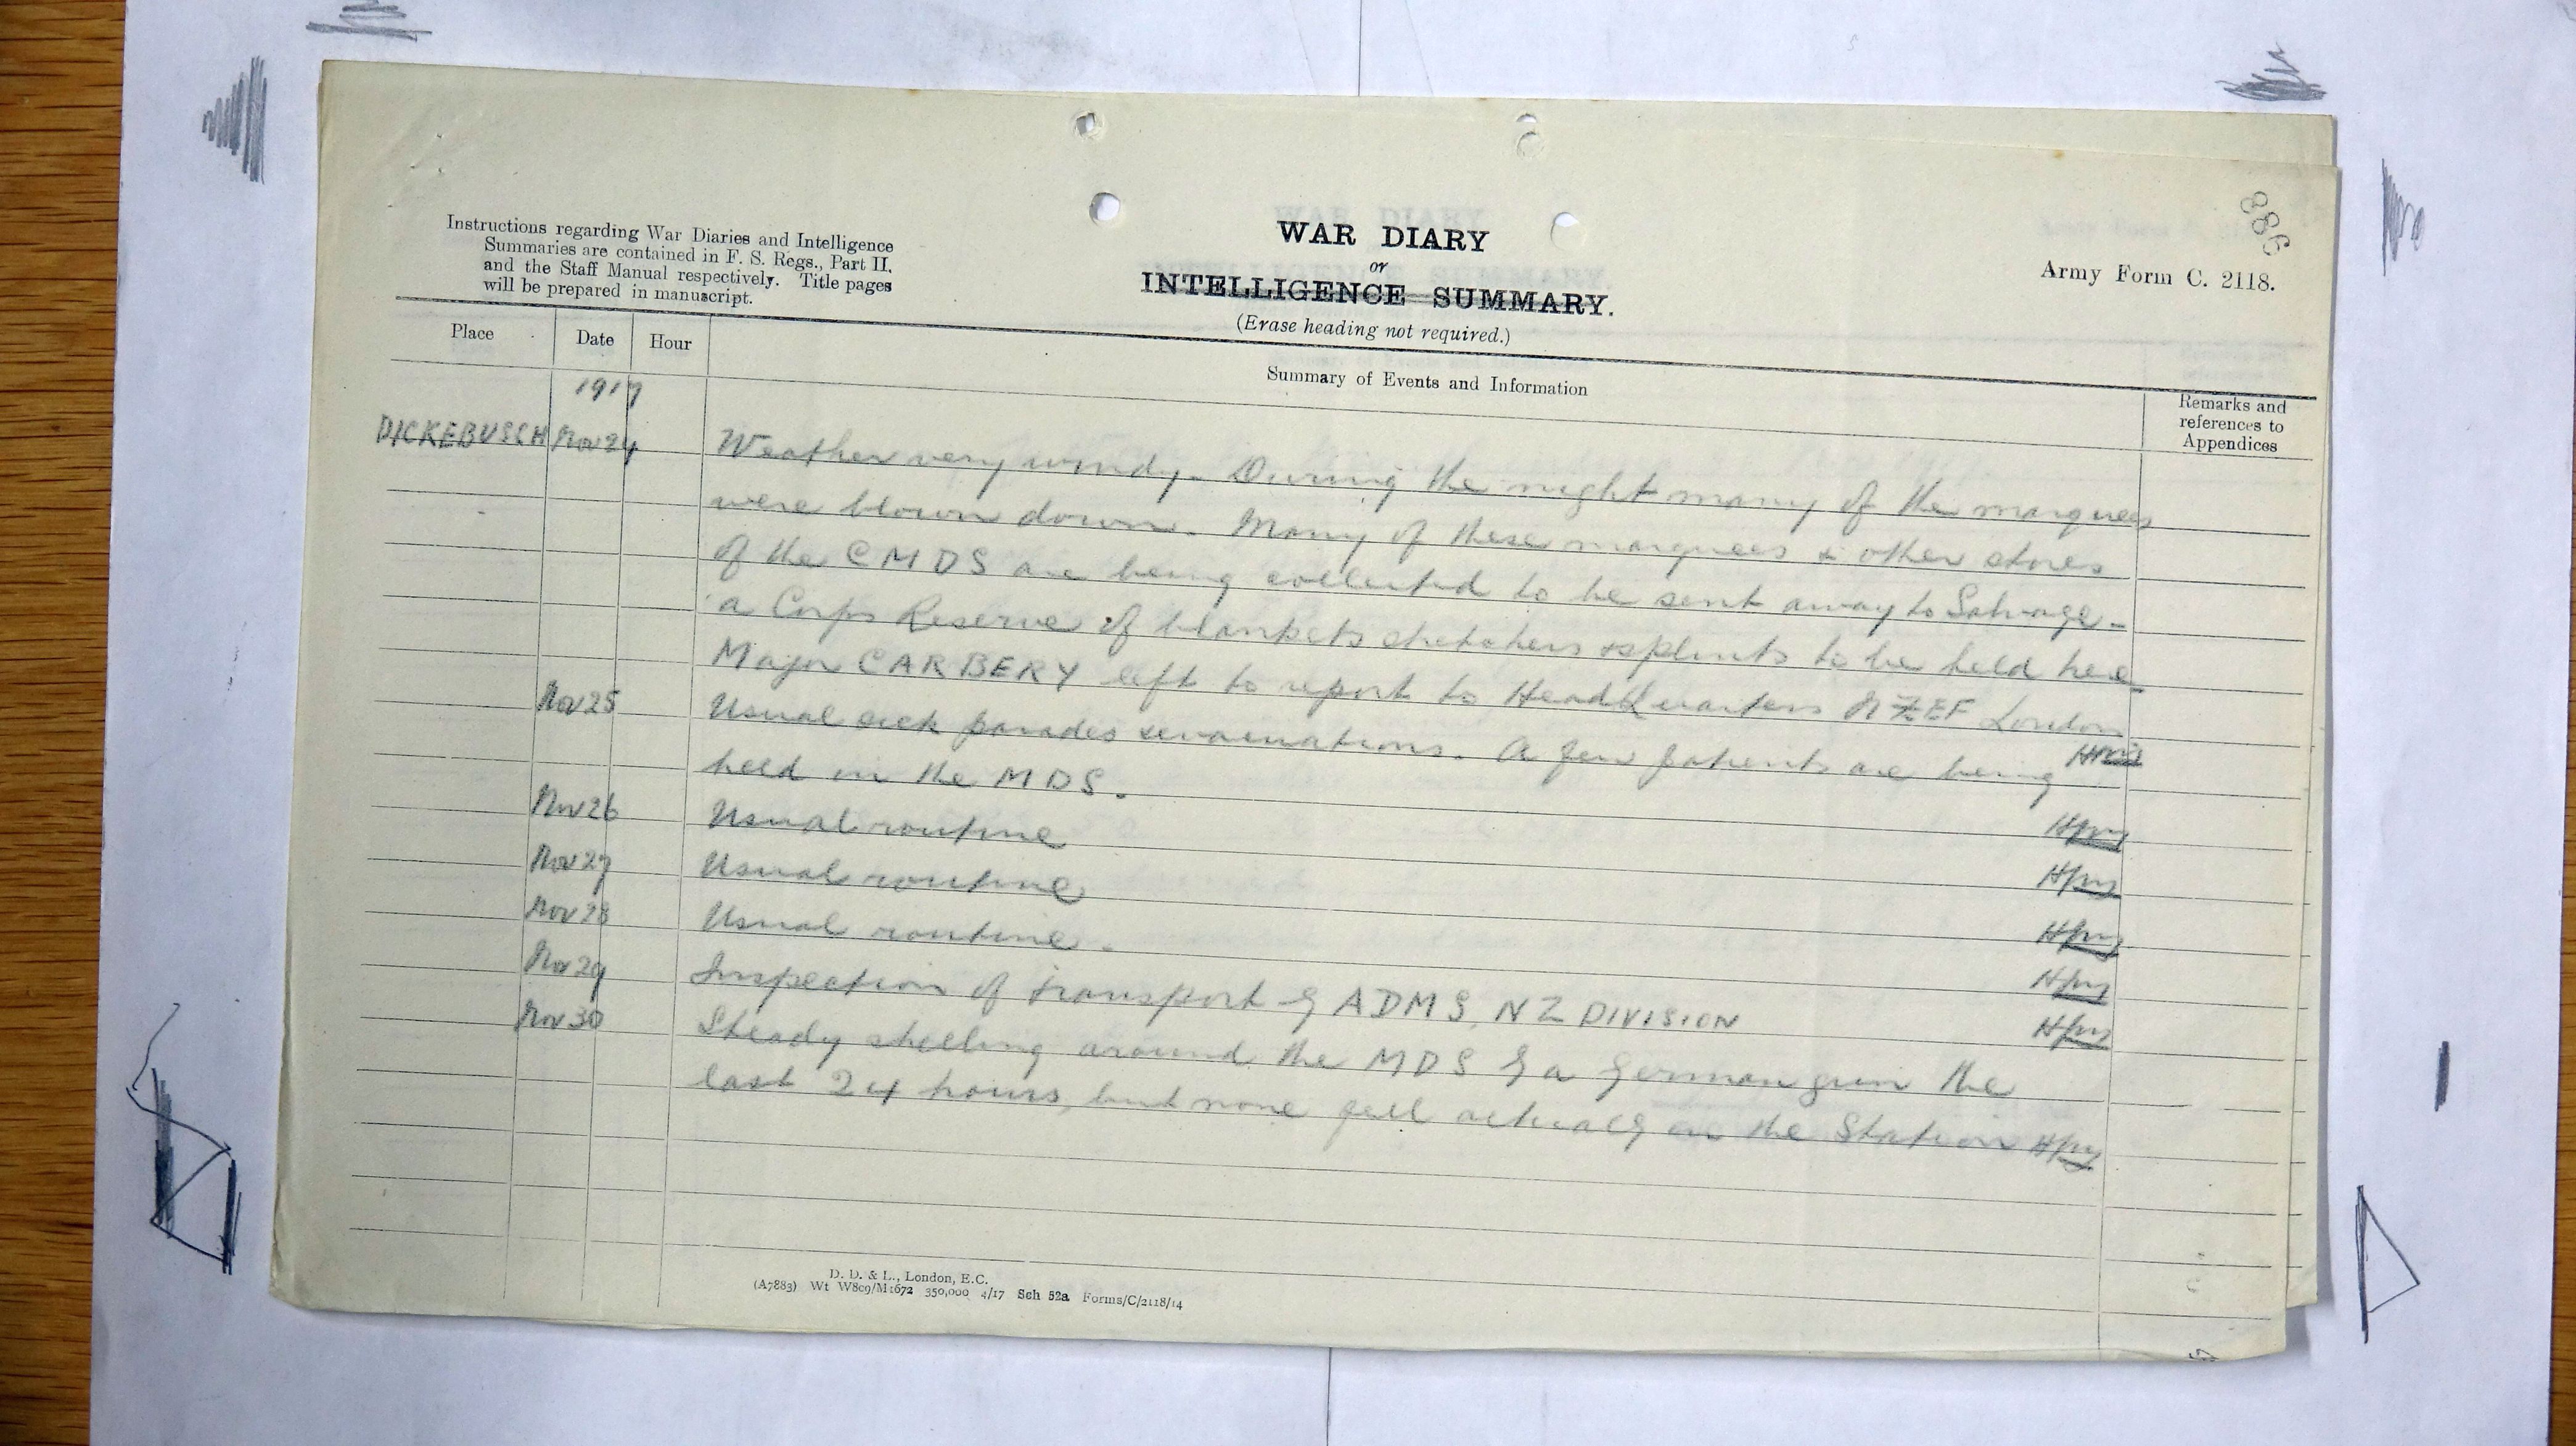 886
Instructions regarding War Diaries and Intelligence
Summaries are contained in F. S. Regs., Part II.
and the Staff Manual respectively. Title pages
will be prepared in manuscript.
WAR DIARY
or
INTELLIGENCE SUMMARY.
(Erase heading not required.)
Army Form C. 2118.
Place Date Hour Summary of Events and Information Remarks and references to Appendices
1917
DICKEBUSCH Nov 24 Weather very windy. During the night many of the marquees
were blown down. Many of these marquees & other stores
of the CMDS are being collected to be sent away to Salvage -
a Corps Reserve of blankets stretchers & splints to be held here
Major CARBERY left to report to HeadQuarters NZEF London
Nov 25 Usual sick parades & evacuations. A few patients are being
held in the MDS.
Nov 26 Usual routine
Nov 27 Usual routine
Nov 28 Usual routine.
Nov 29 Inspection of transport by ADMS, NZ DIVISION
Nov 30 Steady shelling around the MDS by a German gun the
last 24 hours, but none fell actually on the Station
D. D. & L., London, E.C.
(A7883) Wt W809/M1672 350,000 4/17 Sch 52a Forms/C/2118/14